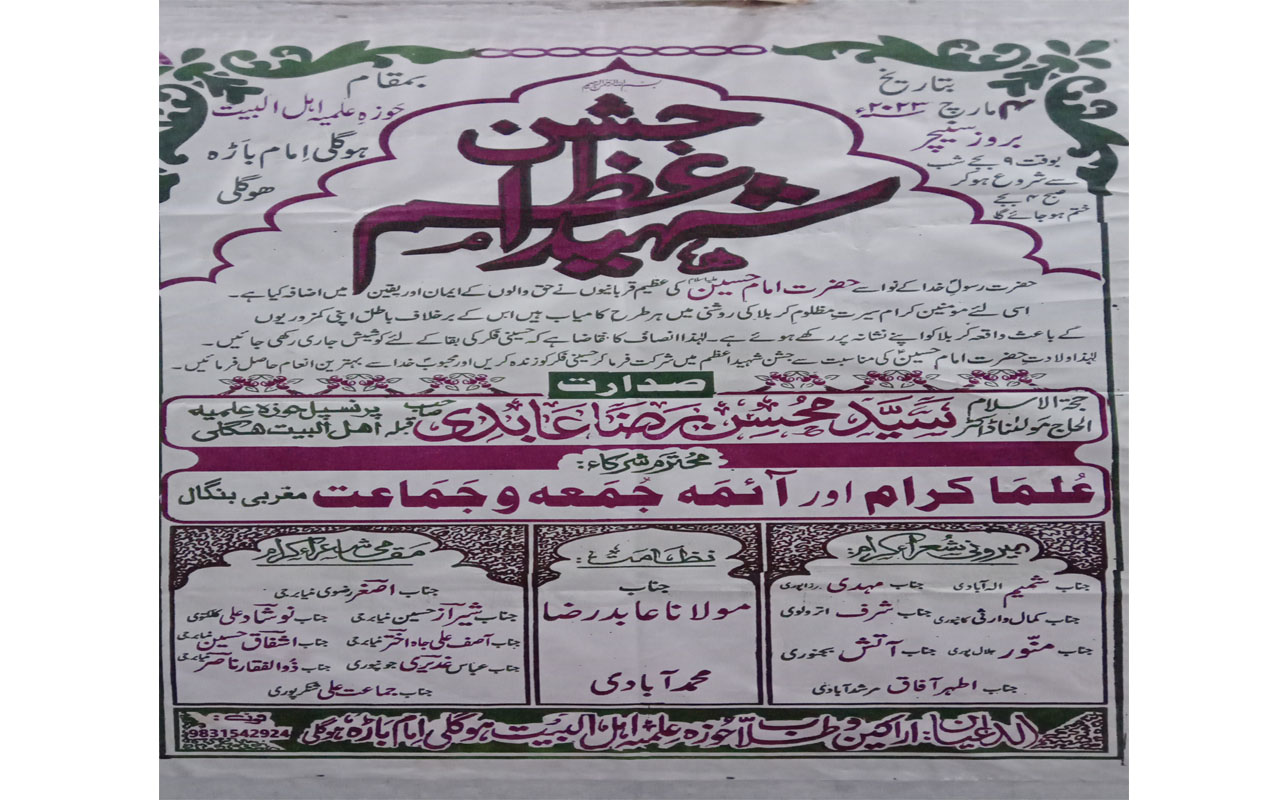 بتاریخ
۴ مارچ ۲۰۲۳ء
بروز سنیچر
بوقت ۹ بجے شب
سے شروع ہوکر
صبح ۴ بجے
ختم ہوجائے گا
بمقام
حوزہ علمیہ اہل البیت
ہوگلی امام باڑہ
ہوگلی
جشن
شہید اعظم
حضرت رسولؐ خدا کے نواسے حضرت امام حسینؑ کی عظیم قربانیوں نے حق والوں کے ایمان اور یقین میں اضافہ کیا ہے۔
اسی لئے مومنین کرام سیرت مظلوم کربلا کی روشنی میں ہر طرح کامیاب ہیں اس کے برخلاف باطل اپنی کمزوریوں
کے باعث واقعہ کربلا کو اپنے نشانہ پر رکھے ہوئے ہے۔ لہٰذا انصاف کا تقاضا ہے کہ حسینی فکر کی بقا کے لئے کوشیش جاری رکھی جائیں۔
لہٰذا ولادت حضرت امام حسینؑ کی مناسبت سے جشن شہید اعظم میں شرکت فرما کر حسینی فکر کو زندہ کریں اور محبوب خدا سے بہترین انعام حاصل فرمائیں۔
صدارت
حجۃ الاسلام الحاج مولٰنا ڈاکٹر سید محسن رضا عابدی صاحب قبلہ پرنسپل حوزہ علمیہ اھل البیت ھگلی
محترم شرکاء:
علما کرام اور آئمہ جمعہ و جماعت مغربی بنگال
بیرونی شعراء کرام:
جناب شمیم الہ آبادی جناب مہدی رزاپوری
جناب کمال وارثی کانپوری جناب شرف اترولوی
جناب منور جلال پوری جناب آتش بجنوری
جناب اطہر آفاق مرشدآبادی
نظامت:
جناب
مولانا عابد رضا
محمد آبادی
مقامی شعراء کرام
جناب اصغر رضوی مٹیابرجی
جناب شیراز حسین مٹیابرجی جناب نوشاد علی کلکتوی
جناب آصف علی جاہ اختر مٹیابرجی جناب اشفاق حسین مٹیابرجی
جناب عباس غدیری جونپوری جناب ذوالفقار ناصر مٹیابرجی
جناب جماعت علی شکرپوری
الداعیان: اراکین و طلاب حوزہ علمیہ اہل البیت ہوگلی امام باڑہ ہوگلی
فون: 9831542924